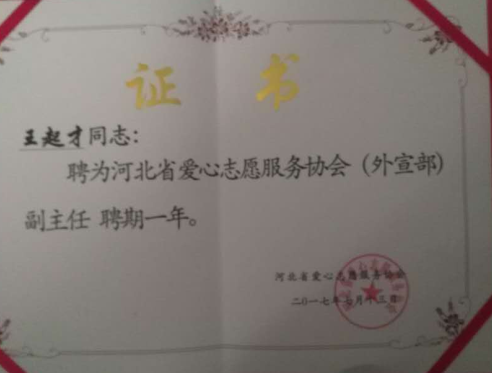 证书
王起才同志：
聘为河北省爱心志愿服务协会（外宣部）
副主任 聘期一年。
河北省爱心志愿服务协会
二〇一七年七月十三日